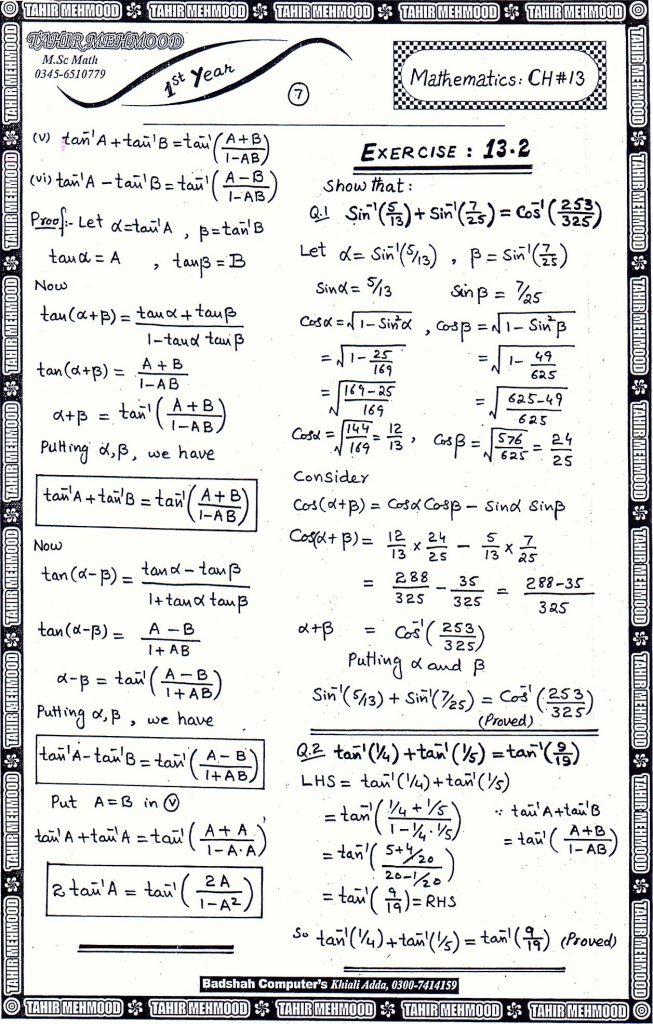 TAHIR MEHMOOD TAHIR MEHMOOD TAHIR MEHMOOD TAHIR MEHMOOD TAHIR MEHMOOD
TAHIR MEHMOOD
M.Sc Math
0345-6510779
1st Year
7
Mathematics: CH#13
(v) tan⁻¹A + tan⁻¹B = tan⁻¹((A+B)/(1-AB))
(vi) tan⁻¹A - tan⁻¹B = tan⁻¹((A-B)/(1-AB))
Proof:- Let α=tan⁻¹A , β=tan⁻¹B
tanα = A , tanβ = B
Now
tan(α+β) = (tanα + tanβ)/(1-tanα tanβ)
tan(α+β) = (A+B)/(1-AB)
α+β = tan⁻¹((A+B)/(1-AB))
Putting α,β, we have
tan⁻¹A + tan⁻¹B = tan⁻¹((A+B)/(1-AB))
Now
tan(α-β) = (tanα - tanβ)/(1+tanα tanβ)
tan(α-β) = (A-B)/(1+AB)
α-β = tan⁻¹((A-B)/(1+AB))
Putting α,β, we have
tan⁻¹A - tan⁻¹B = tan⁻¹((A-B)/(1+AB))
Put A=B in (v)
tan⁻¹A + tan⁻¹A = tan⁻¹((A+A)/(1-A·A))
2 tan⁻¹A = tan⁻¹(2A/(1-A²))
EXERCISE : 13.2
Show that:
Q.1 Sin⁻¹(5/13) + Sin⁻¹(7/25) = Cos⁻¹(253/325)
Let α = Sin⁻¹(5/13) , β = Sin⁻¹(7/25)
Sinα = 5/13 Sinβ = 7/25
Cosα = √(1-Sin²α) , Cosβ = √(1-Sin²β)
= √(1-25/169) = √(1-49/625)
= √((169-25)/169) = √((625-49)/625)
Cosα = √(144/169) = 12/13 , Cosβ = √(576/625) = 24/25
Consider
Cos(α+β) = Cosα Cosβ - Sinα Sinβ
Cos(α+β) = 12/13 × 24/25 - 5/13 × 7/25
= 288/325 - 35/325 = (288-35)/325
α+β = Cos⁻¹(253/325)
Putting α and β
Sin⁻¹(5/13) + Sin⁻¹(7/25) = Cos⁻¹(253/325)
(Proved)
Q.2 tan⁻¹(1/4) + tan⁻¹(1/5) = tan⁻¹(9/19)
LHS = tan⁻¹(1/4) + tan⁻¹(1/5)
= tan⁻¹((1/4 + 1/5)/(1 - 1/4·1/5)) ∵ tan⁻¹A + tan⁻¹B
= tan⁻¹((5+4/20)/(20-1/20)) = tan⁻¹((A+B)/(1-AB))
= tan⁻¹(9/19) = RHS
So tan⁻¹(1/4) + tan⁻¹(1/5) = tan⁻¹(9/19) (Proved)
Badshah Computer's Khiali Adda, 0300-7414159
TAHIR MEHMOOD TAHIR MEHMOOD TAHIR MEHMOOD TAHIR MEHMOOD TAHIR MEHMOOD